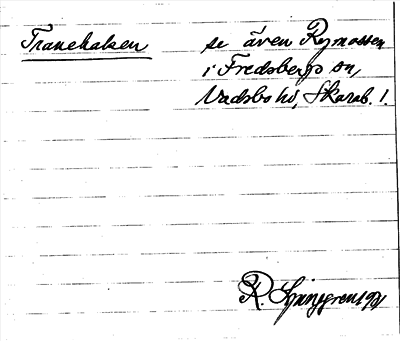 Tranehalsen se även Rymossen
i Fredsbergs sn,
Vadsbo hd, Skarab. l.
R. Ljunggren 1921